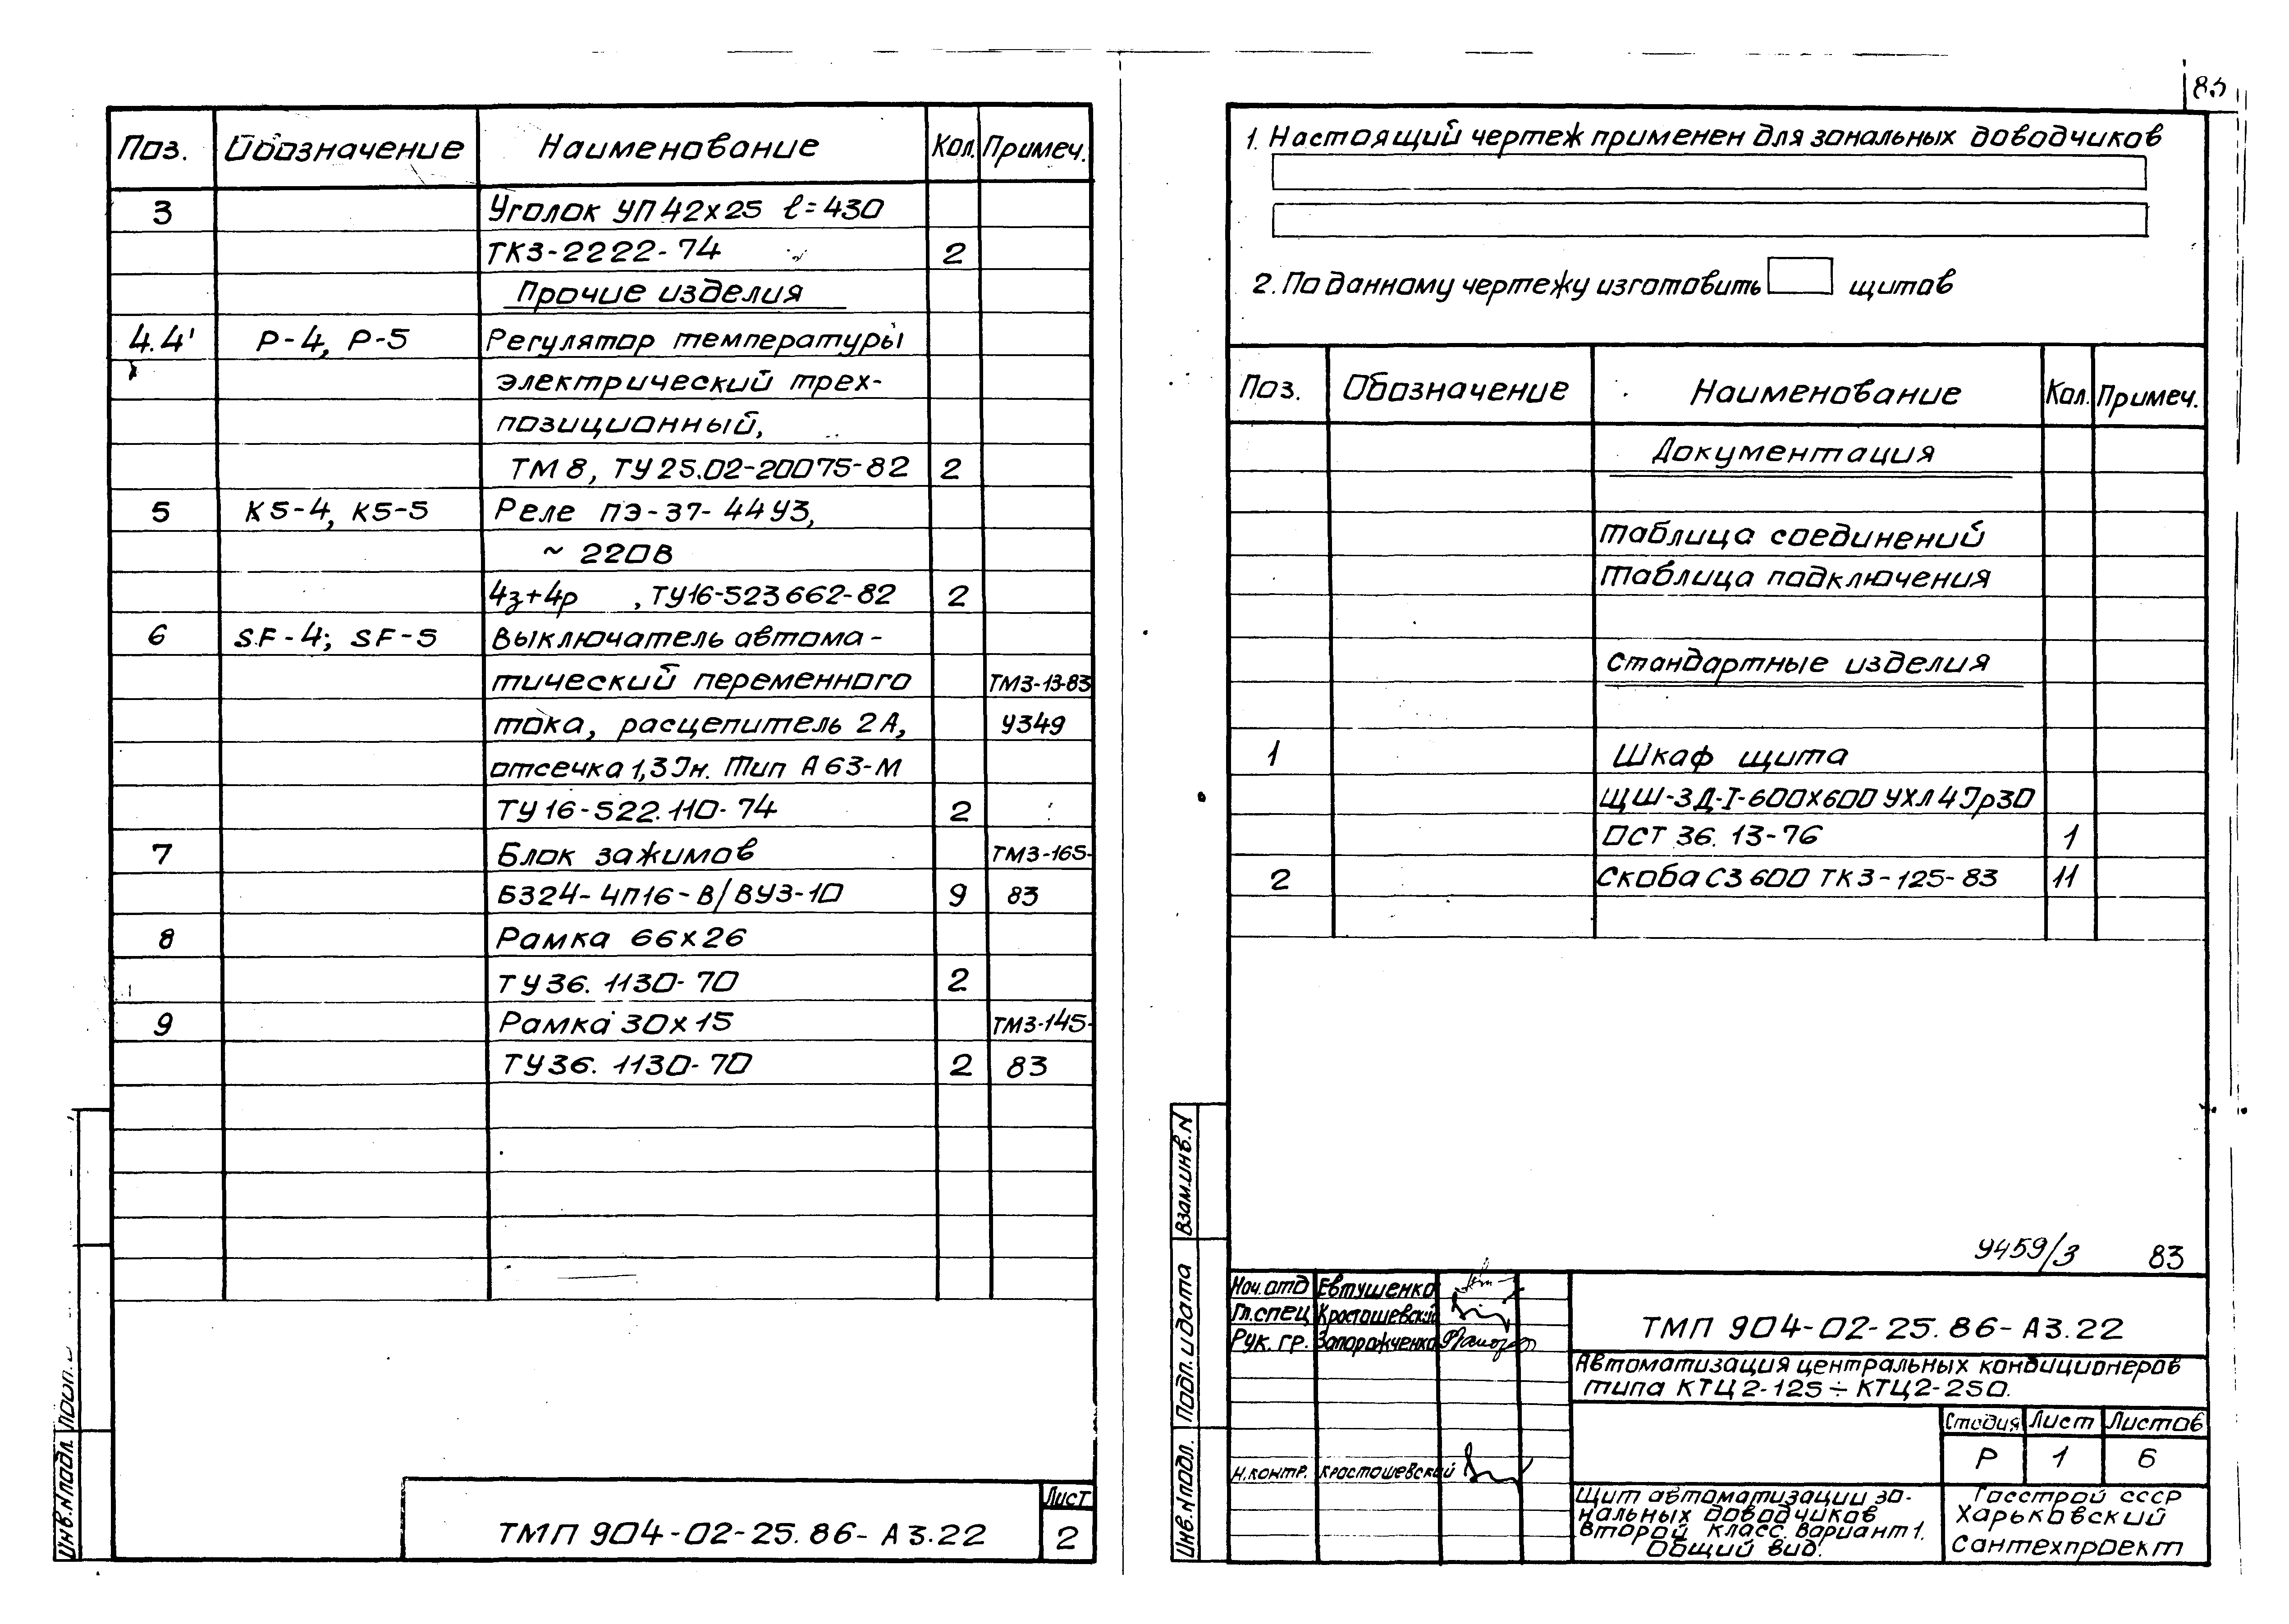 Поз. Обозначение Наименование Кол. Примеч.
3 Уголок УП 42х25 ℓ=430
ТК3-2222-74 2
Прочие изделия
4.4' Р-4, Р-5 Регулятор температуры
электрический трех-
позиционный,
ТМ 8, ТУ 25.02-200 75-82 2
5 К5-4, К5-5 Реле ПЭ-37-44У3,
~ 220В
4з+4р , ТУ16-523 662-82 2
6 SF-4; SF-5 Выключатель автома-
тический переменного ТМ3-13-83
тока, расцепитель 2А, У349
отсечка 1,3 Iн. Тип А63-М
ТУ 16-522.110-74 2
7 Блок зажимов ТМ3-165-
Б324-4П16-В/ВУ3-10 9 83
8 Рамка 66х26
ТУ36.1130-70 2
9 Рамка 30х15 ТМ3-145-
ТУ36.1130-70 2 83
Инв.N подл. Подп.
ТМП 904-02-25.86-А3.22
Лист
2
1. Настоящий чертеж применен для зональных доводчиков
2. По данному чертежу изготовить щитов
Поз. Обозначение Наименование Кол. Примеч.
Документация
Таблица соединений
Таблица подключения
Стандартные изделия
1 Шкаф щита
ЩШ-3Д-I-600х600 УХЛ4 Iр30
ОСТ 36.13-76 1
2 Скоба С3 600 ТК3-125-83 11
9459/3 83
Взам.инв.N
Подп. и дата
Инв.N подл.
Нач.отд Евтушенко
Гл.спец Красташевский
Рук. гр. Запорожченко
Н.контр. Красташевский
ТМП 904-02-25.86-А3.22
Автоматизация центральных кондиционеров
типа КТЦ2-125÷КТЦ2-250.
Стадия Лист Листов
Р 1 6
Щит автоматизации зо-
нальных доводчиков
Второй класс. Вариант 1.
Общий вид.
Госстрой СССР
Харьковский
Сантехпроект